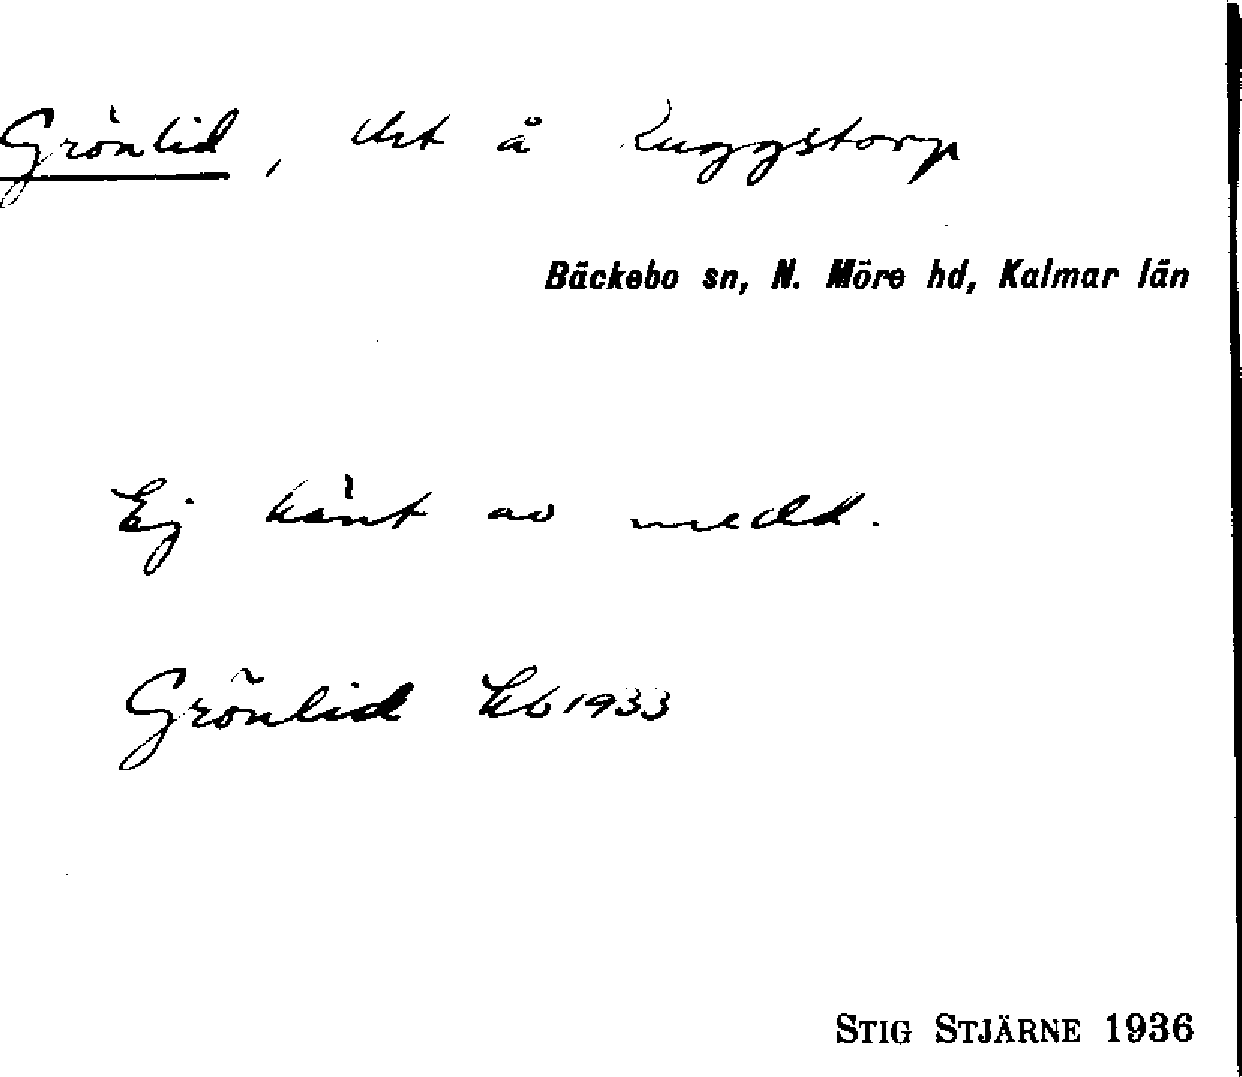 Grönlid, lht å Ruggstorp
Bäckebo sn, N. Möre hd, Kalmar län
Ej känt av medd.
Grönlid Kb 1933
STIG STJÄRNE 1936